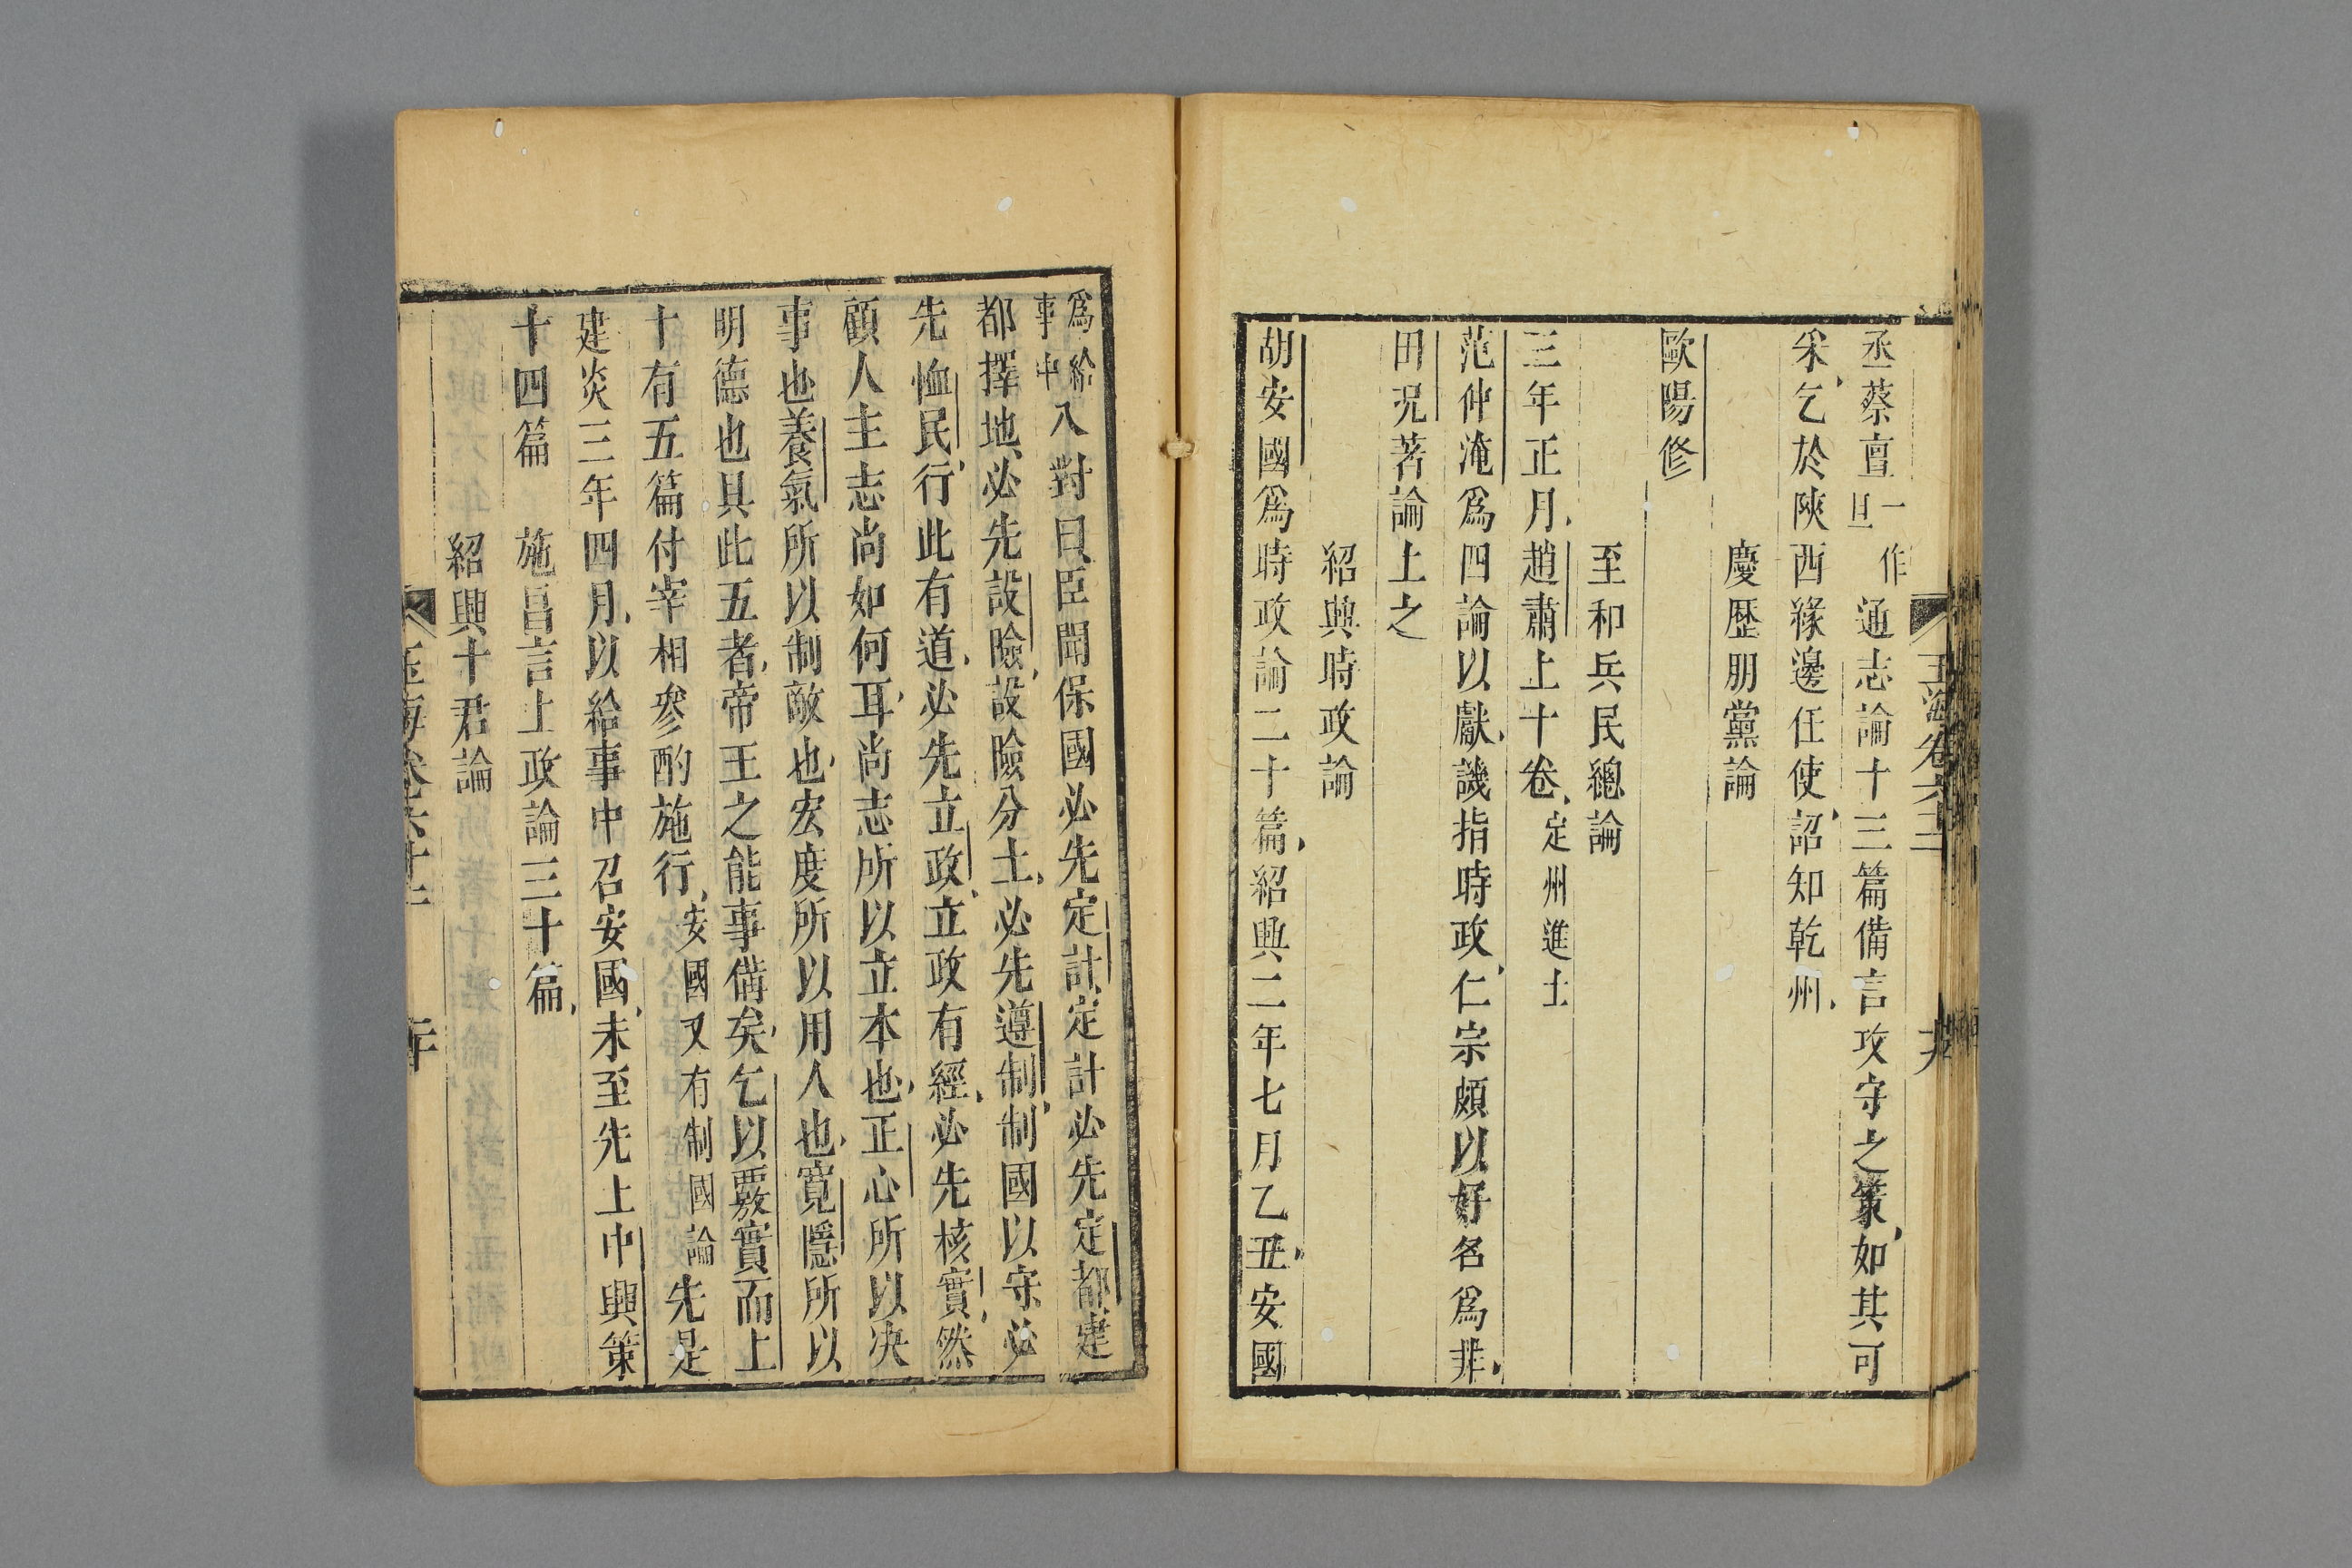 丞蔡亶一作亶通志論十三篇備言攻守之策如其可
采乞於陝西緣邊任使詔知乾州
慶歷朋黨論
歐陽修
至和兵民總論
三年正月趙肅上十卷定州進士
范仲淹爲四論以獻譏指時政仁宗頗以好名爲非
田況著論上之
紹興時政論
胡安國爲時政論二十篇紹興二年七月乙丑安國
爲給事中入對曰臣聞保國必先定計定計必先定都建
都擇地必先設險設險分土必先遵制制國以守必
先恤民行此有道必先立政立政有經必先核實然
顧人主志尚如何耳尚志所以立本也正心所以决
事也養氣所以制敵也宏度所以用人也寬隱所以
明德也具此五者帝王之能事備矣乞以覈實而上
十有五篇付宰相參酌施行安國又有制國論先是
建炎三年四月以給事中召安國未至先上中興策
十四篇　施昌言上政論三十篇
紹興十君論
玉海卷六十二